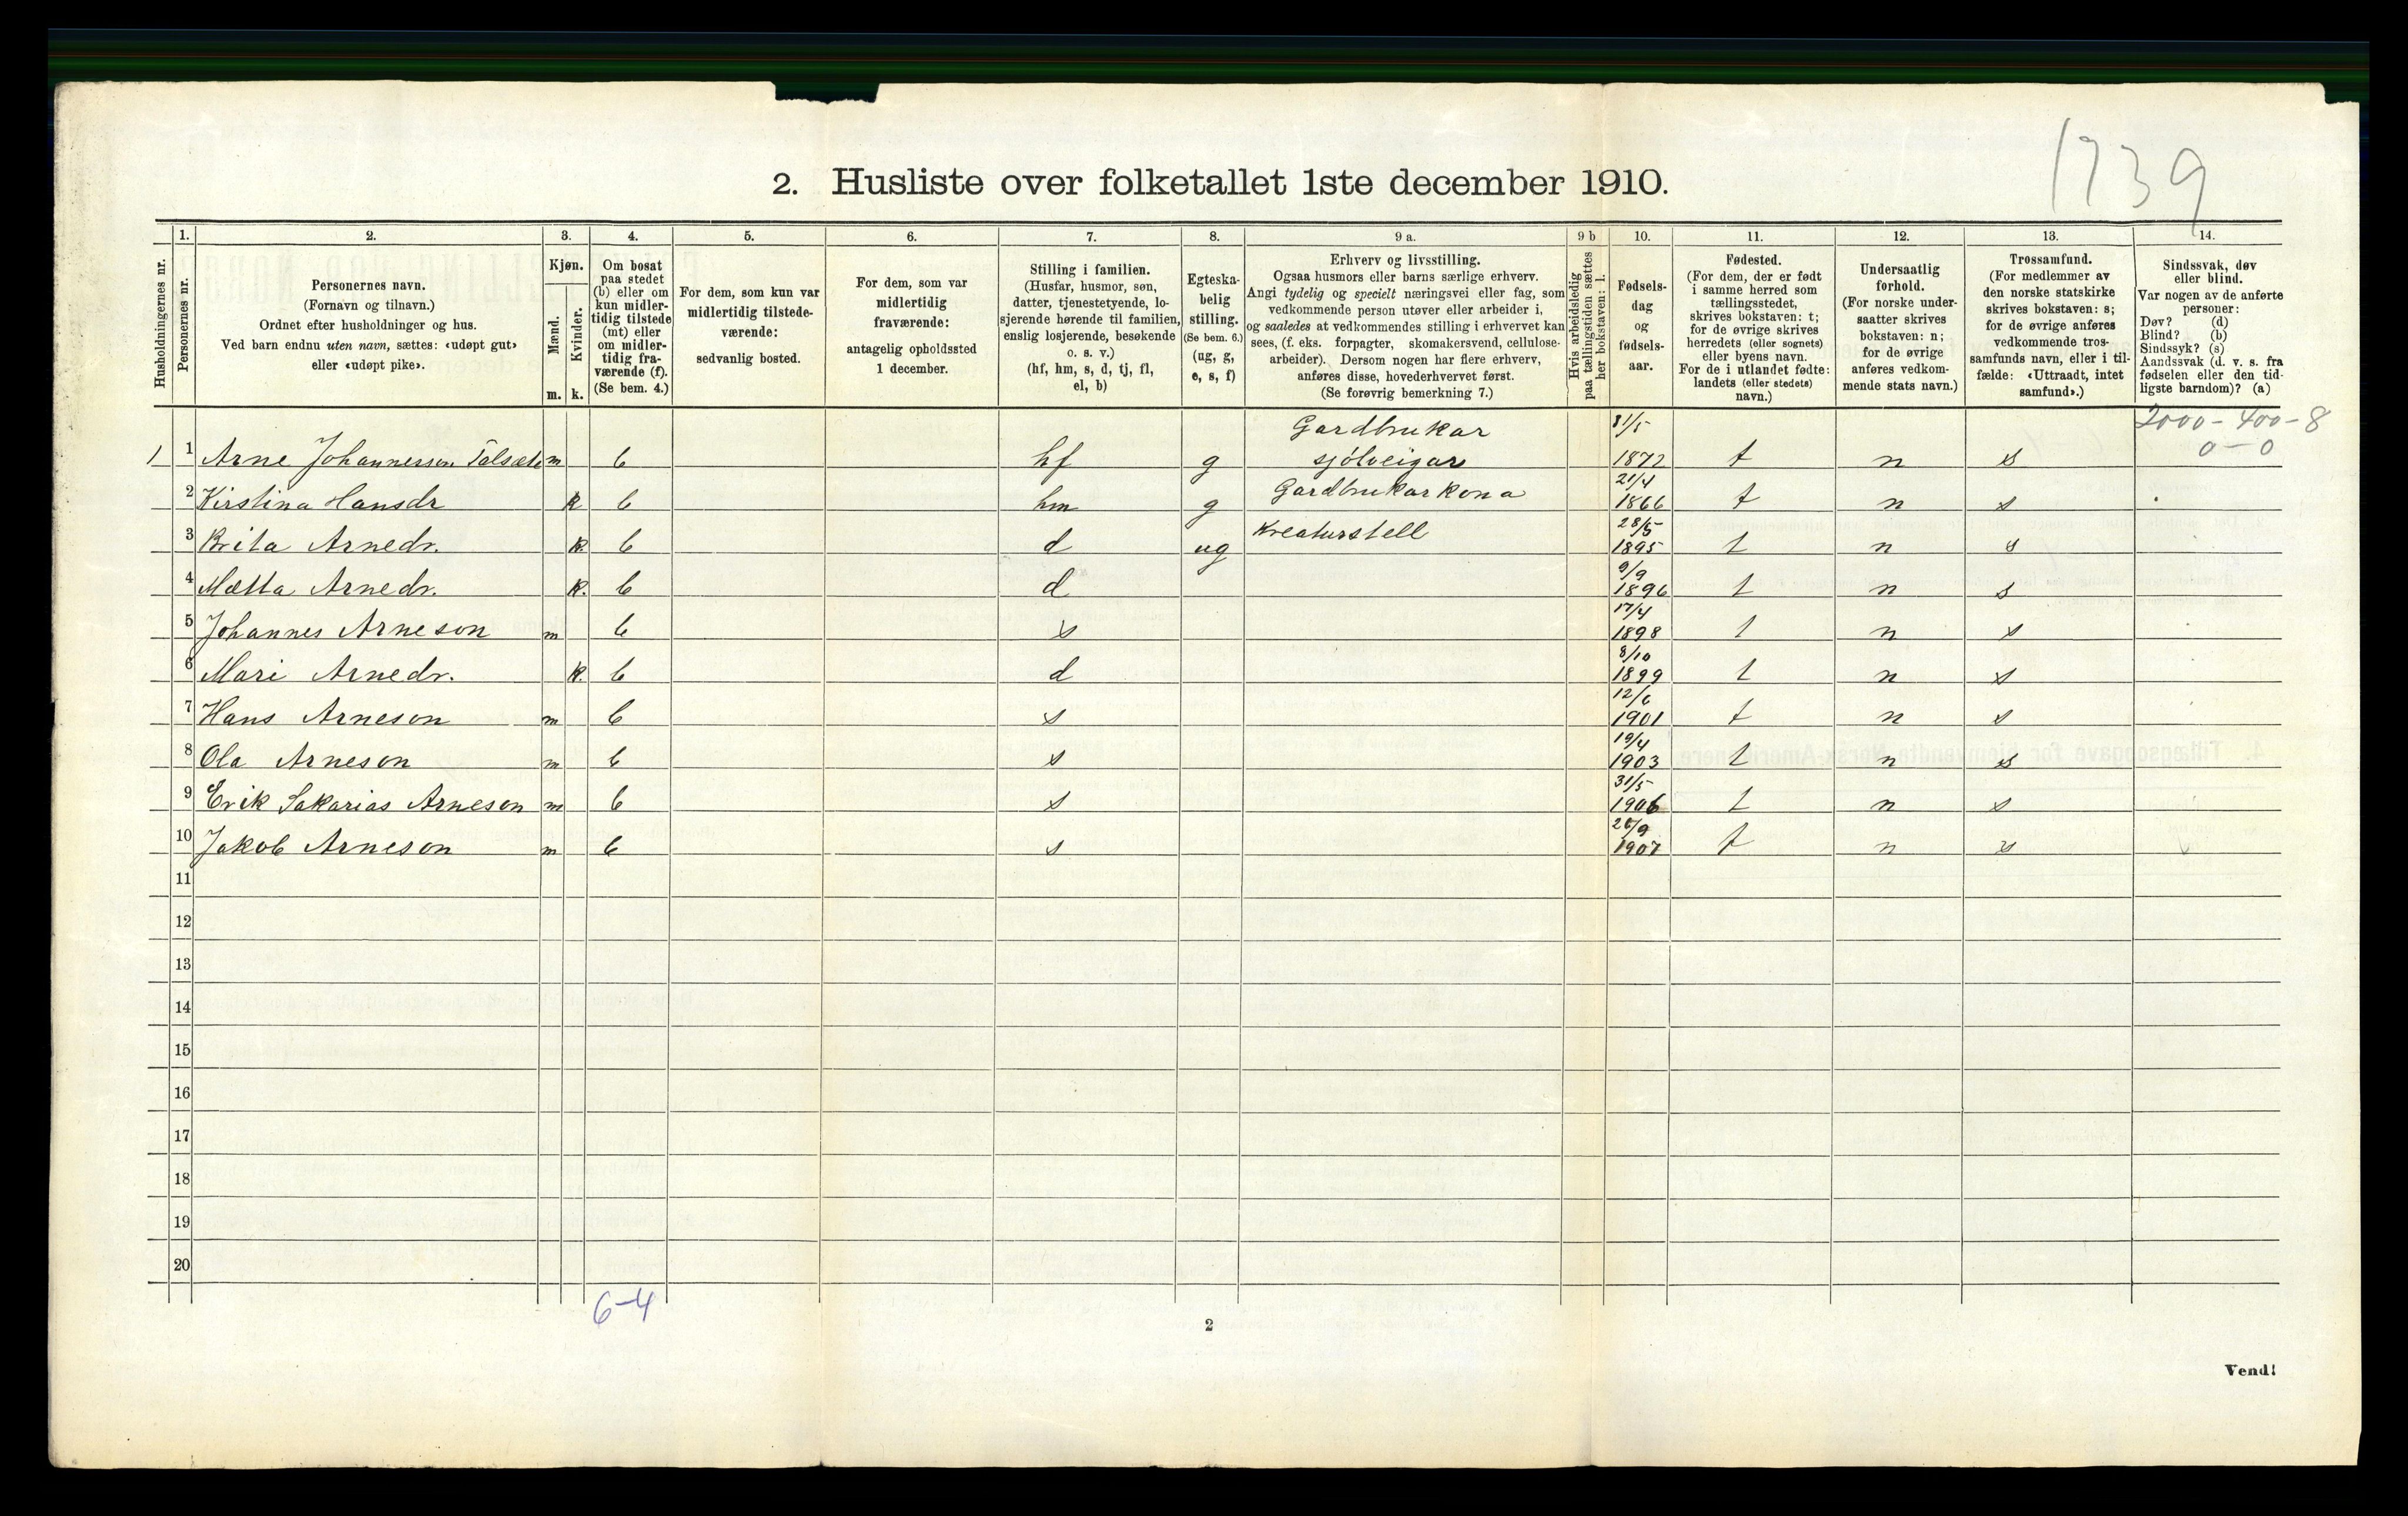 1739
2. Husliste over folketallet 1ste december 1910.
1. 2. 3. 4. 5. 6. 7. 8. 9 a. 9 b 10. 11. 12. 13. 14.
Husholdningernes nr.
Personernes nr.
Personernes navn.
(Fornavn og tilnavn.)
Ordnet efter husholdninger og hus.
Ved barn endnu uten navn, sættes: «udøpt gut»
eller «udøpt pike».
Kjøn.
Mænd.
Kvinder.
m. k.
Om bosat
paa stedet
(b) eller om
kun midler-
tidig tilstede
(mt) eller
om midler-
tidig fra-
værende (f).
(Se bem. 4.)
For dem, som kun var
midlertidig tilstede-
værende:
sedvanlig bosted.
For dem, som var
midlertidig
fraværende:
antagelig opholdssted
1 december.
Stilling i familien.
(Husfar, husmor, søn,
datter, tjenestetyende, lo-
sjerende hørende til familien,
enslig losjerende, besøkende
o. s. v.)
(hf, hm, s, d, tj, fl,
el, b)
Egteska-
belig
stilling.
(Se bem. 6.)
(ug, g,
e, s, f)
Erhverv og livsstilling.
Ogsaa husmors eller barns særlige erhverv.
Angi tydelig og specielt næringsvei eller fag, som
vedkommende person utøver eller arbeider i,
og saaledes at vedkommendes stilling i erhvervet kan
sees, (f. eks. forpagter, skomakersvend, cellulose-
arbeider). Dersom nogen har flere erhverv,
anføres disse, hovederhvervet først.
(Se forøvrig bemerkning 7.)
Hvis arbeidsledig
paa tællingstiden sættes
her bokstaven: l.
Fødsels-
dag
og
fødsels-
aar.
Fødested.
(For dem, der er født
i samme herred som
tællingsstedet,
skrives bokstaven: t;
for de øvrige skrives
herredets (eller sognets)
eller byens navn.
For de i utlandet fødte:
landets (eller stedets)
navn.)
Undersaatlig
forhold.
(For norske under-
saatter skrives
bokstaven: n;
for de øvrige
anføres vedkom-
mende stats navn.)
Trossamfund.
(For medlemmer av
den norske statskirke
skrives bokstaven: s;
for de øvrige anføres
vedkommende tros-
samfunds navn, eller i til-
fælde: «Uttraadt, intet
samfund».)
Sindssvak, døv
eller blind.
Var nogen av de anførte
personer:
Døv? (d)
Blind? (b)
Sindssyk? (s)
Aandssvak (d. v. s. fra
fødselen eller den tid-
ligste barndom)? (a)
2000-400-8
0-0
Gardbrukar 31/5
1 1 Arne Johannesson m b hf g sjölveigar 1872 t n s
21/4
2 Kirstina Hansdr k b hm g Gardbrukarkona 1866 t n s
28/5
3 Brita Arnedr. k. b d ug Kreaturstell 1895 t n s
9/9
4 Mætta Arnedr. k. b d 1896 t n s
17/4
5 Johannes Arneson m b s 1898 t n s
8/10
6 Mari Arnedr. k. b d 1899 t n s
12/6
7 Hans Arneson m b s 1901 t n s
19/4
8 Ola Arneson m b s 1903 t n s
31/5
9 Erik Sakarias Arneson m b s 1906 t n s
26/9
10 Jakob Arneson m b s 1907 t n s
11
12
13
14
15
16
17
18
19
20
6-4
2
Vend!